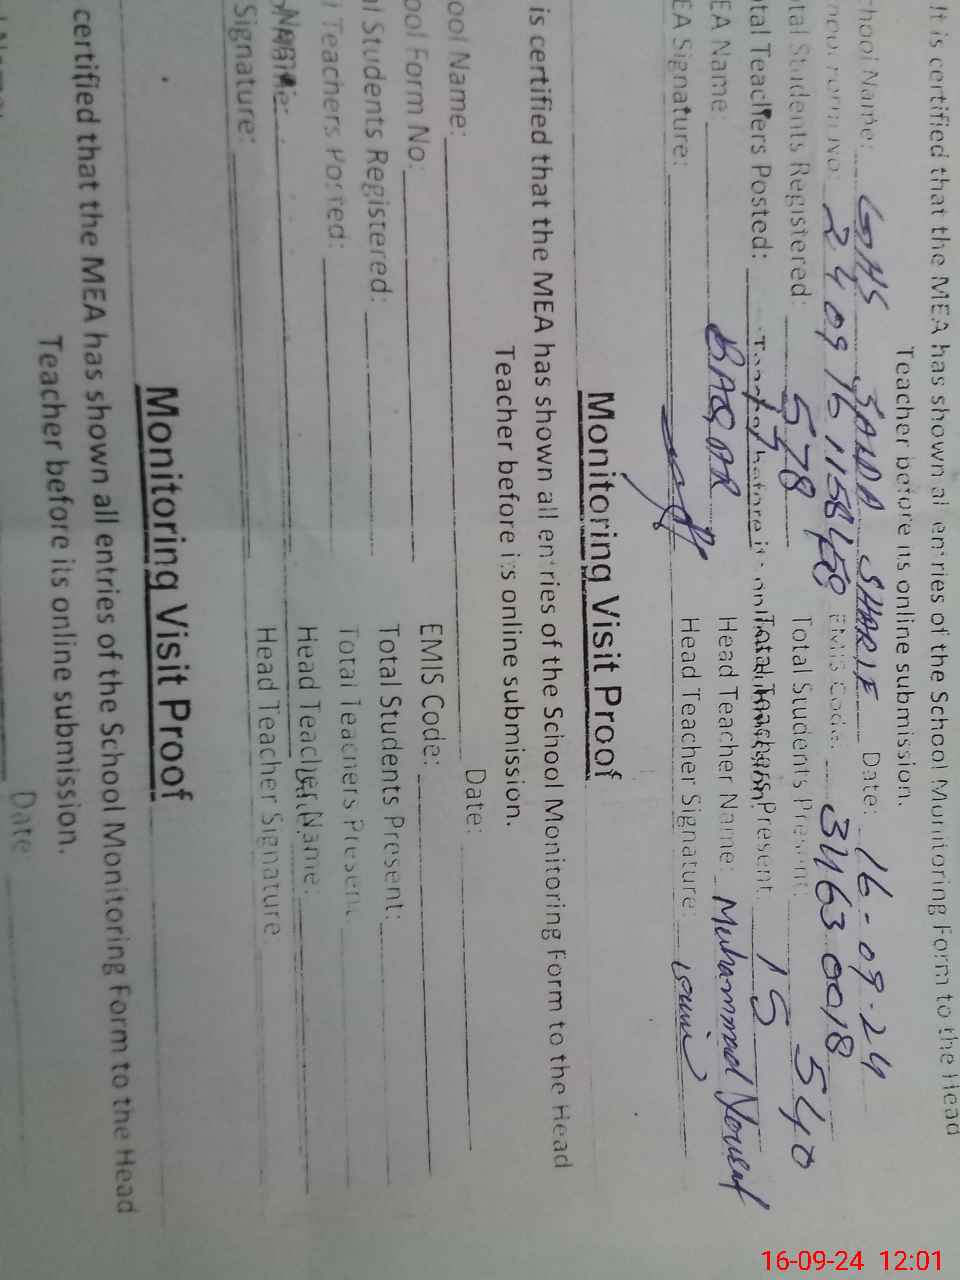 It is certified that the MEA has shown all entries of the School Monitoring Form to the Head
Teacher before its online submission.
chool Name: GHS SANDA SHARIF Date: 16-09-24
EMIS Code: 34630018
tal Students Registered: 578 Total Students Present: 540
tal Teachers Posted: Present: 15
EA Name: BAQAR Head Teacher Name: Muhammad Yousaf
EA Signature: Head Teacher Signature:
Monitoring Visit Proof
is certified that the MEA has shown all entries of the School Monitoring Form to the Head
Teacher before its online submission.
ool Name: Date:
ool Form No: EMIS Code:
al Students Registered: Total Students Present:
l Teachers Posted: Total Teachers Present:
Name: Head Teacher Name:
Signature: Head Teacher Signature
Monitoring Visit Proof
certified that the MEA has shown all entries of the School Monitoring Form to the Head
Teacher before its online submission.
Date
16-09-24 12:01